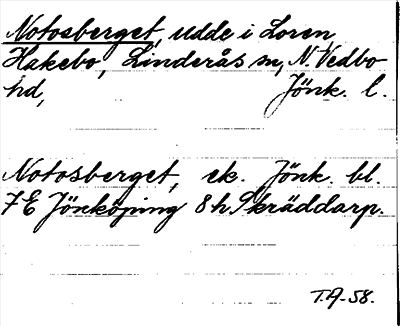 Notosberget, udde i Loren
Hakebo, Linderås sn, N. Vedbo
hd, Jönk. l.
Notosberget, ek. Jönk. bl.
7E Jönköping 8h Skräddarp.
T.A-58.